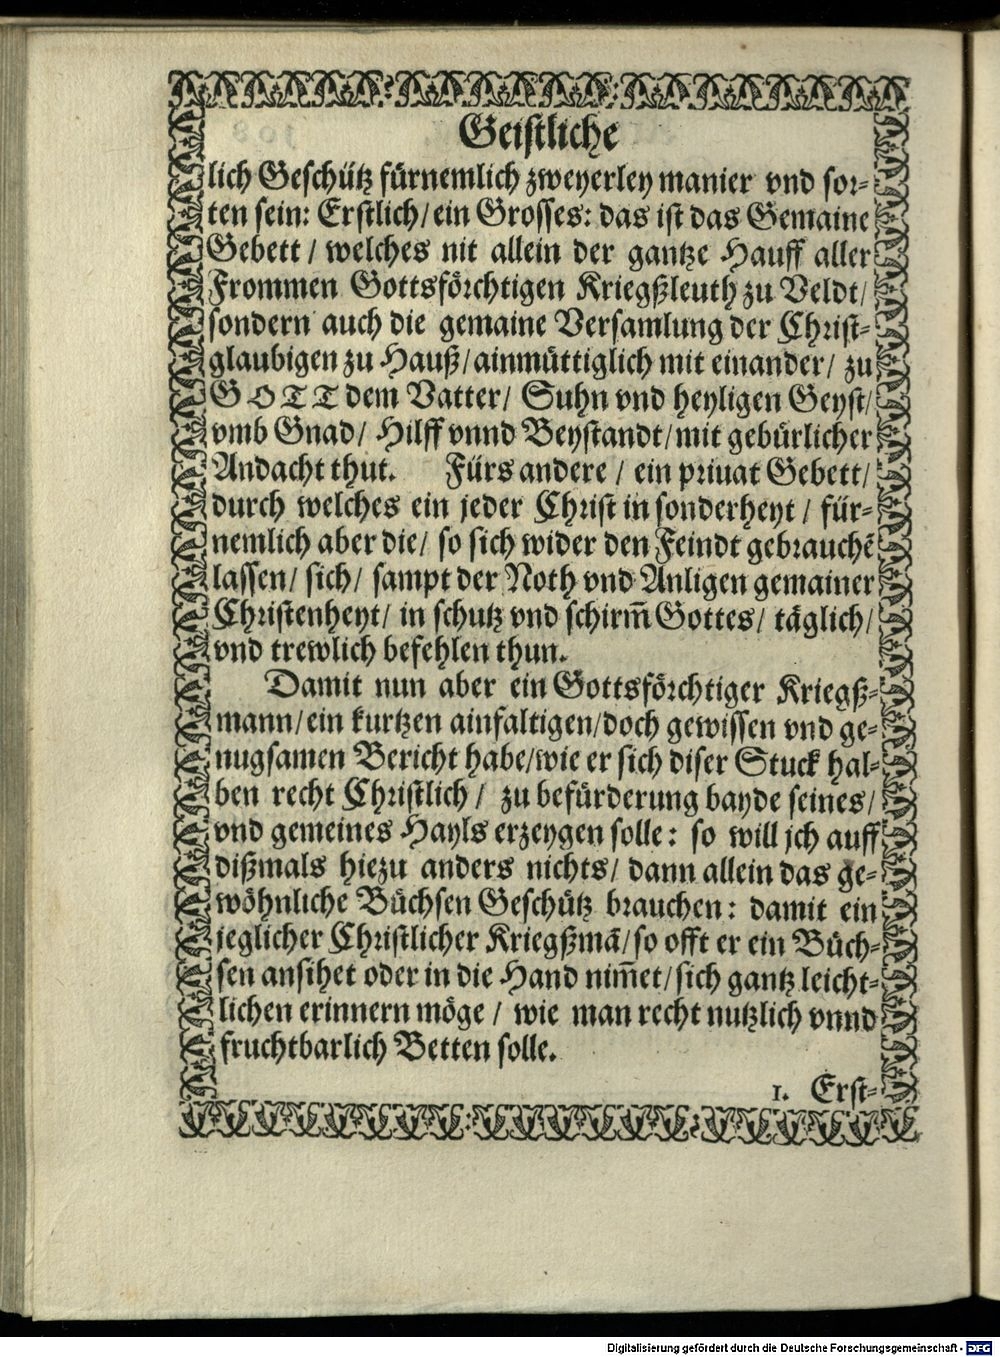 Geistliche
lich Geschütz fürnemlich zweyerley manier vnd sor-
ten sein: Erstlich/ ein Grosses: das ist das Gemaine
Gebett / welches nit allein der gantze Hauff aller
Frommen Gottsförchtigen Kriegßleuth zu Veldt/
sondern auch die gemaine Versamlung der Christ-
glaubigen zu Hauß/ ainmüttiglich mit einander/ zu
GOTT dem Vatter/ Suhn vnd heyligen Geyst/
vmb Gnad/ Hilff vnnd Beystandt/ mit gebürlicher
Andacht thut. Fürs andere / ein priuat Gebett/
durch welches ein jeder Christ in sonderheyt / für-
nemlich aber die/ so sich wider den Feindt gebrauchẽ
lassen/ sich/ sampt der Noth vnd Anligen gemainer
Christenheyt/ in schutz vnd schirm̃ Gottes/ täglich/
vnd trewlich befehlen thun.
Damit nun aber ein Gottsförchtiger Kriegß-
mann/ ein kurtzen ainfaltigen/ doch gewissen vnd ge-
nugsamen Bericht habe/ wie er sich diser Stuck hal-
ben recht Christlich / zu befürderung bayde seines/
vnd gemeines Hayls erzeygen solle: so will jch auff
dißmals hiezu anders nichts/ dann allein das ge-
wöhnliche Büchsen Geschütz brauchen: damit ein
jeglicher Christlicher Kriegßmã/ so offt er ein Büch-
sen ansihet oder in die Hand nim̃et/ sich gantz leicht-
lichen erinnern möge / wie man recht nutzlich vnnd
fruchtbarlich Betten solle.
1. Erst-
Digitalisierung gefördert durch die Deutsche Forschungsgemeinschaft - DFG